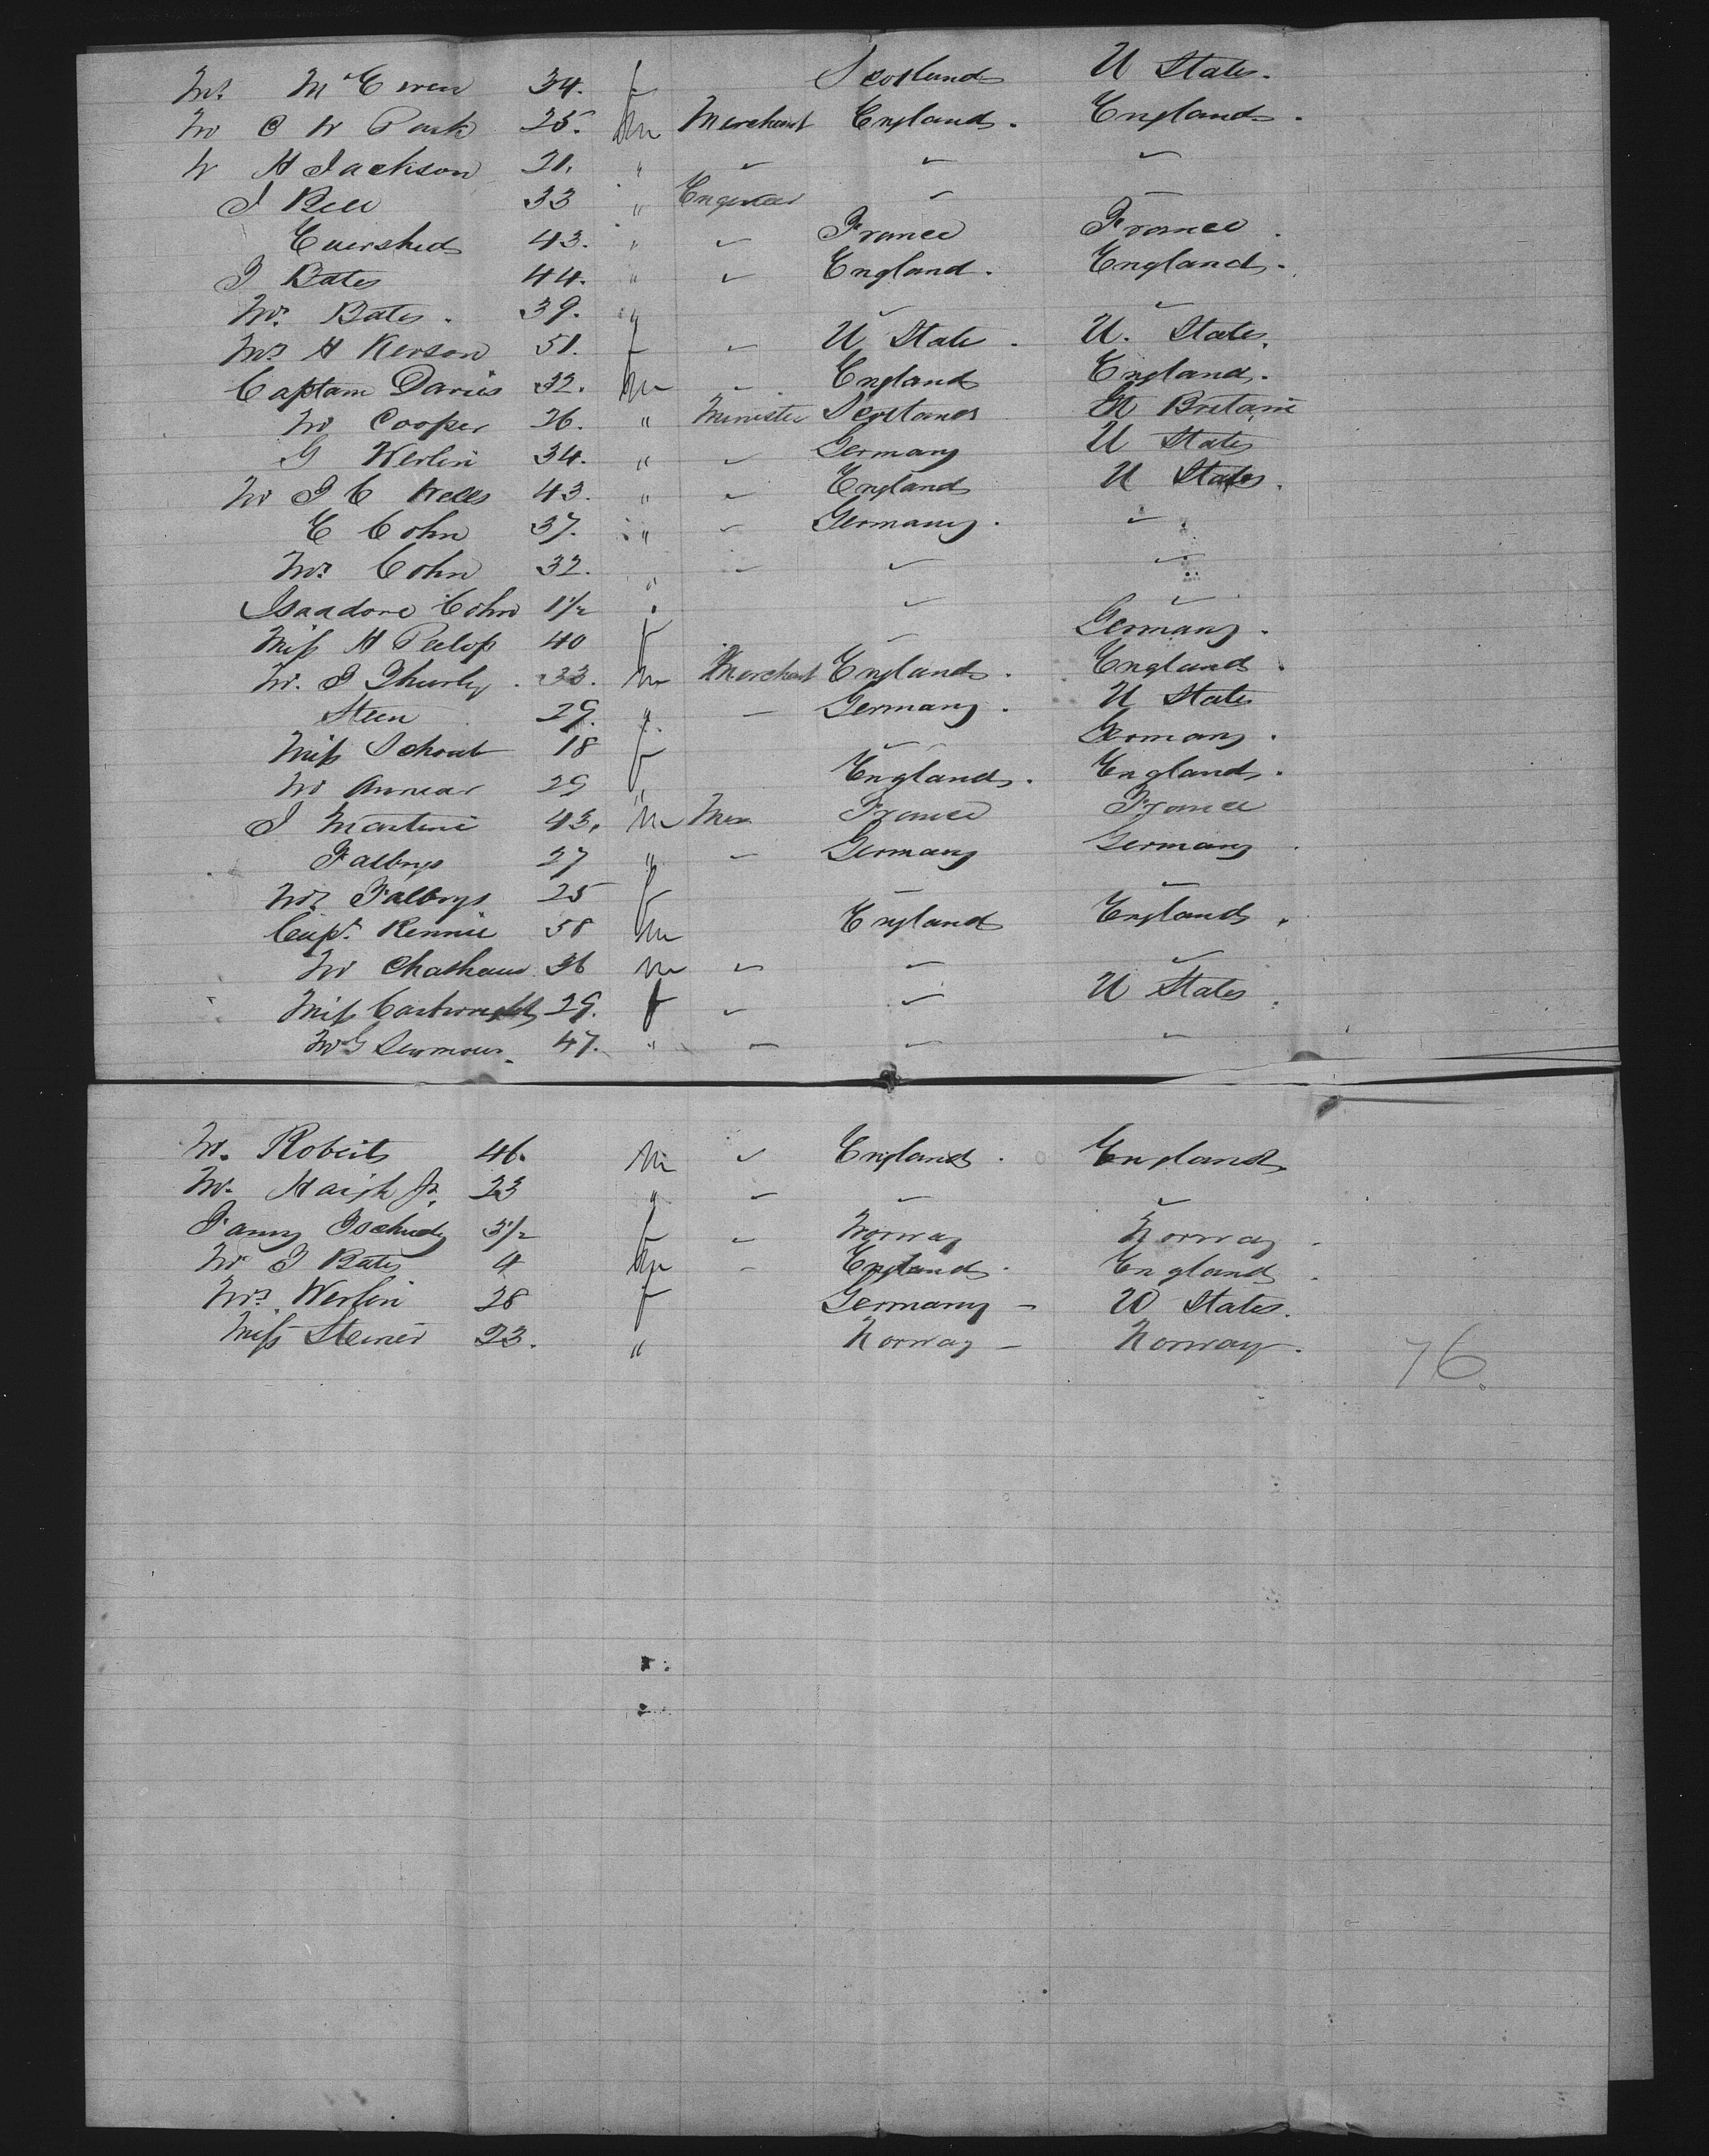 Mrs McEwen 34. f Scotland U States.
Mr C W Park 25. m Merchant England. England.
W H Jackson 21. " " " "
J Bell 33 " Engineer " "
Evershed 43. " " France France.
J Bates 44. " " England. England.
Mrs Bates. 39. " " "
Mrs H Kerson 51. f " U State. U. States.
Captain Davies 32. m " England England.
Mr Cooper 26. " Minister Scotland Gt Britain
G Werlin 34. " " Germany U States
Mr J C Wells 43. " " England U States.
E Cohn 37. " " Germany. "
Mrs Cohn 32. " " " "
Isaadore Cohn 1 1/2 " " "
Miss H 40 f " Germany.
Mr. J Thurley. 33. m Merchant England. England.
Steen 29. " " Germany. U States
Miss Schoub 18 f " Germany.
Mr Annear 29 " England. England.
J Martini 43. m Mer France France
Falbrys 27 " " Germany Germany.
Mrs Falbrys 25 f " "
Capt. Rennie 58 m England England.
Mr Chatham 36 m " " "
Miss Cartwright 29. f " " U States.
Mr G Seymour. 47. " " " "
Mr. Roberts 46. m " England. England
Mr. Haigh Jr. 23 " " " "
Fanny Tschudy 3 1/2 f " Norway Norway.
Mr J Bates 4 m " England. England.
Mrs Werlin 28 f Germany - U States.
Miss Steiner 23. " Norway - Norway.
76.